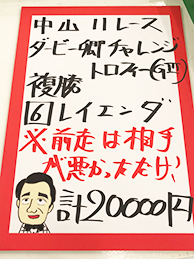 中山 11レース
ダービー卿チャレンジ
トロフィー(GⅢ)
複勝
6 レイエンダ
※前走は相手
が悪かっただけ、
計20000円